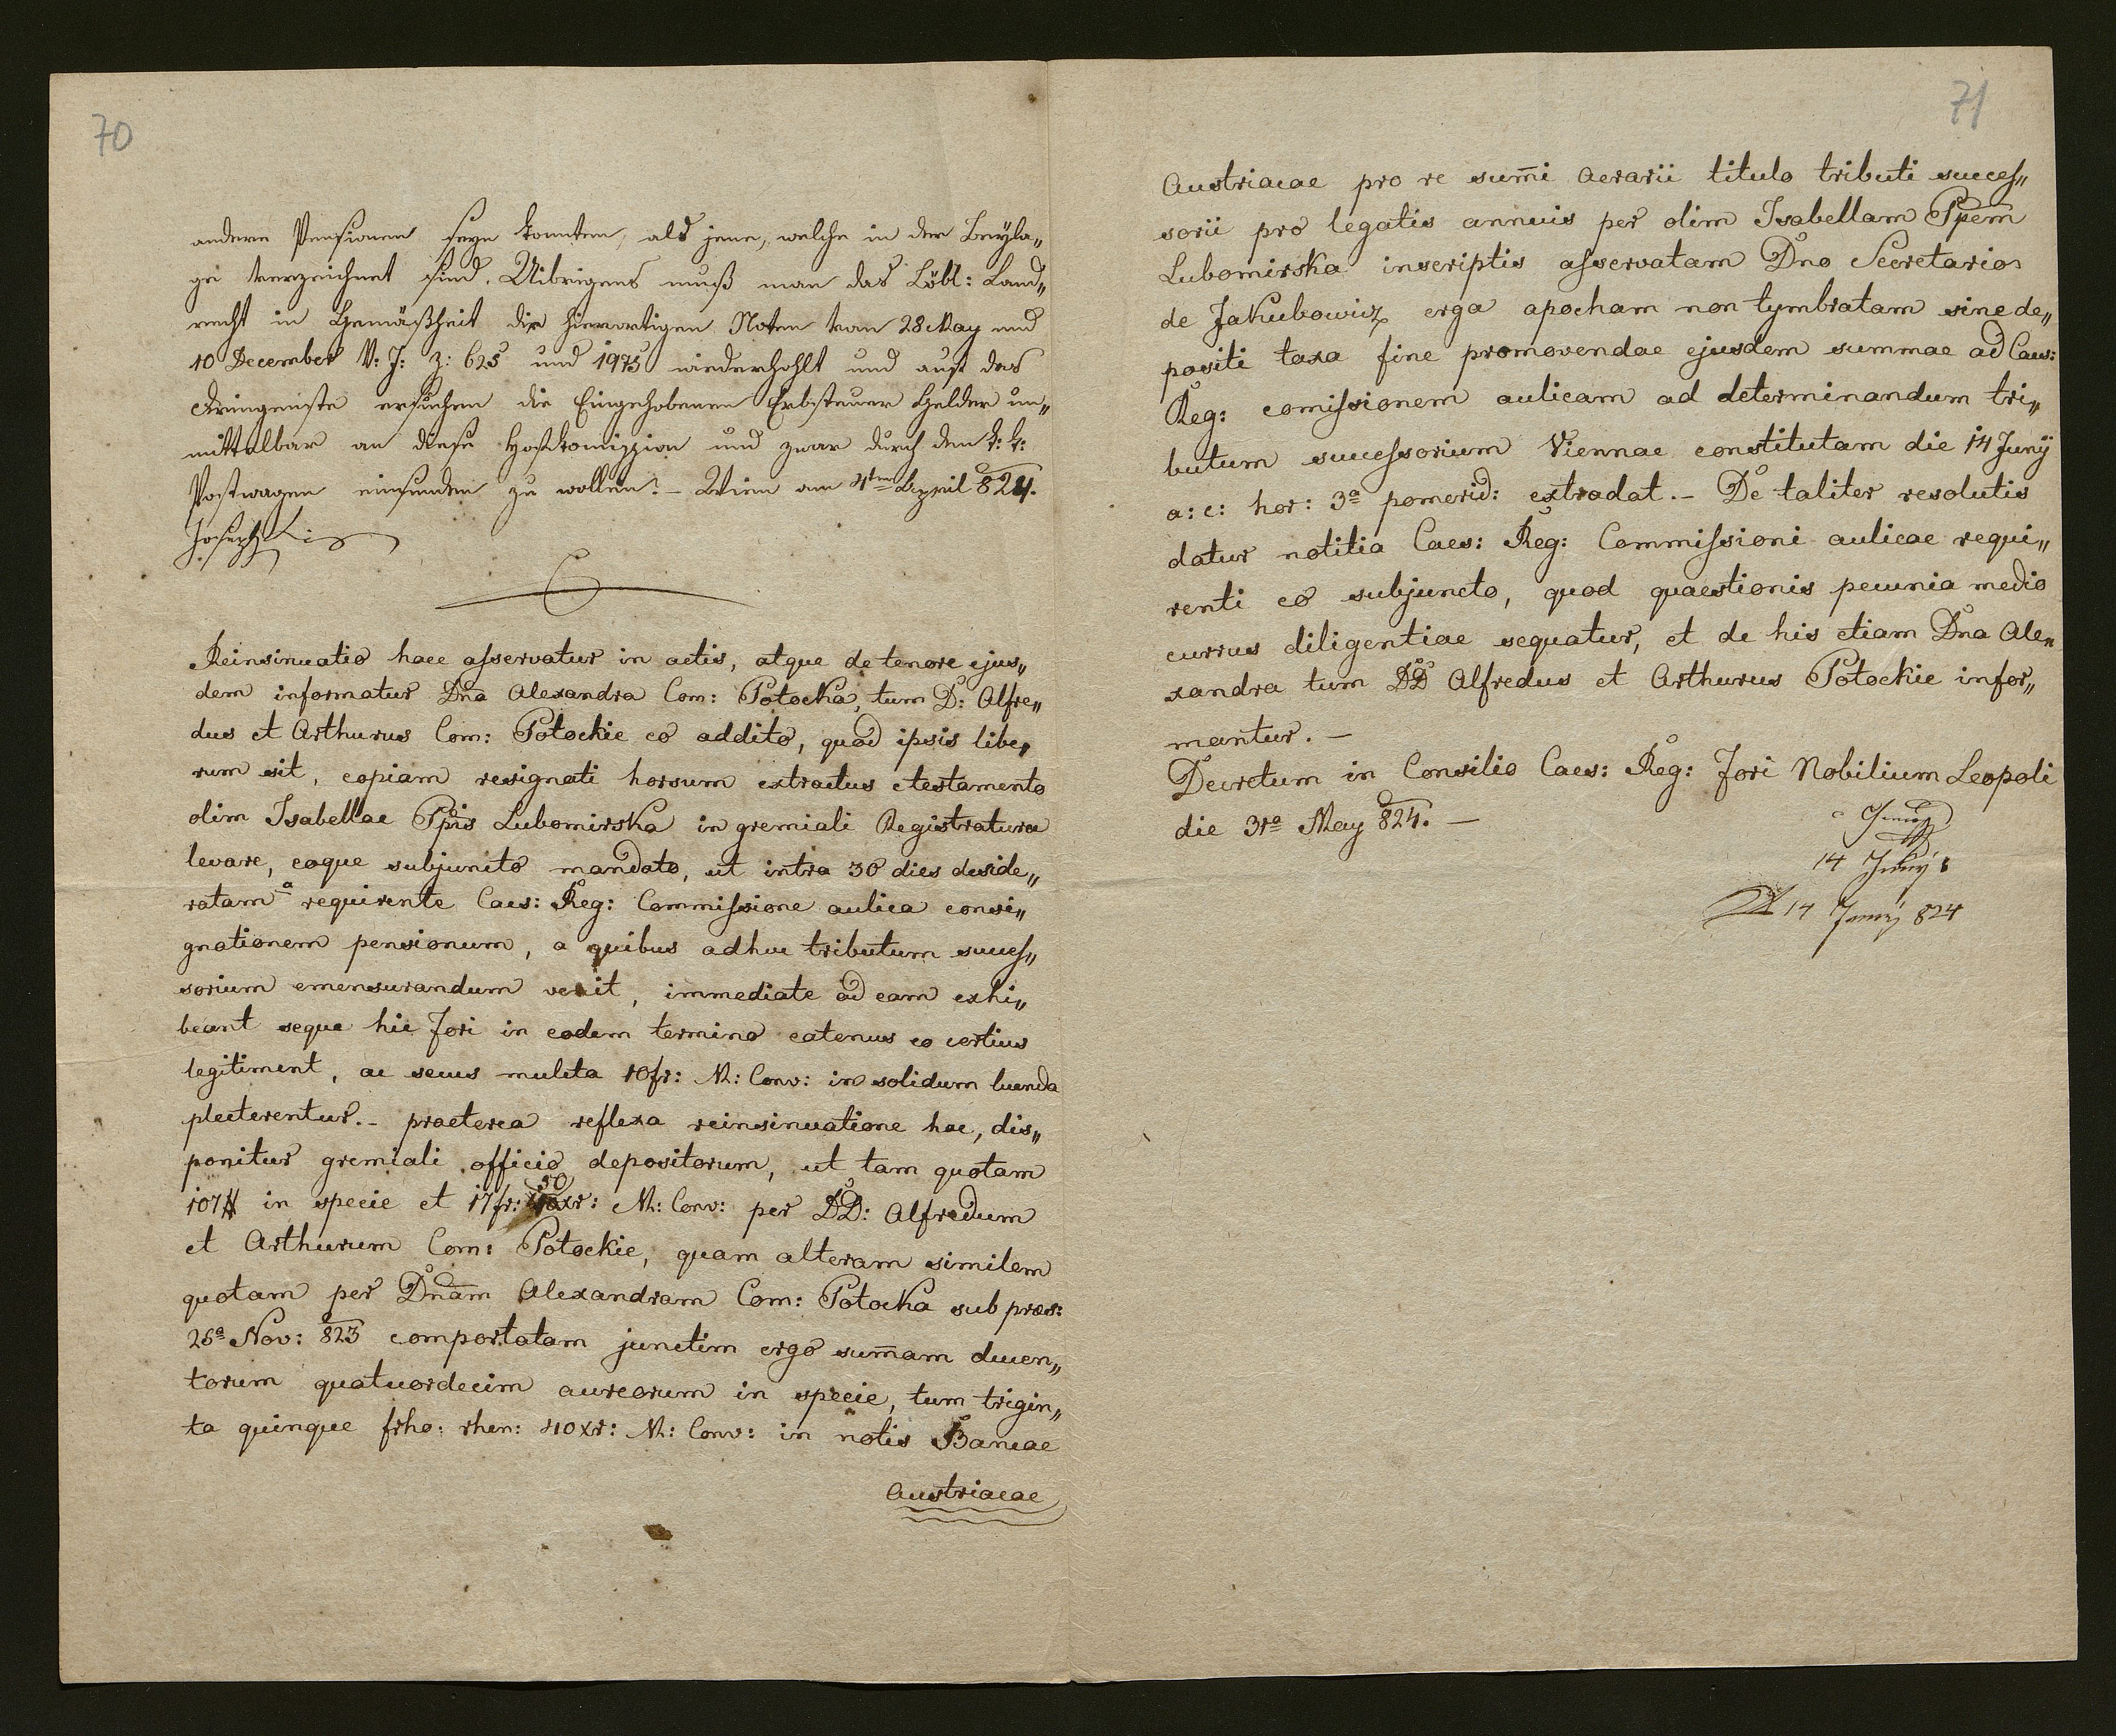 70
andere Pensionen seyn konnten, als jene, welche in der Beyla„
ge verzeichnet sind. Uibrigens muß man das Löbl: Land„
recht in Gemäßheit der hierortigen Noten von 28 May und
10 December V: J: Z: 625 und 1975 wiederhohlt und auf das
dringenste ersuchen die Eingehobenen Erbsteuer Gelder un„
mittelbar an diese Hofkomission und zwar durch den k: k:
Postwagen einsenden zu wollen. – Wien am April 824.
Joseph
Reinsinuatio haec asservatur in actis, atque de tenore ejus„
dem informatur Dna Alexandra Com: Potocka, tum D: Alfre„
dus et Arthurus Com: Potockie eo addito, quod ipsis libe„
rum sit, copiam resignati horsum extractus e testamento
olim Isabellae Ppis Lubomirska in gremiali Registratura
levare, eoque subjuncto mandato, ut intra 30 dies deside„
ratam a requirente Caes: Reg: Commissione aulica consi„
gnationem pensionum, a quibus adhuc tributum succes„
sorium emensurandum venit, immediate ad eam exhi„
beant seque hic Fori in eodem termino eatenus eo certius
legitiment, ac secus mulcta 10 fr: M: Conv: in solidum luenda
plecterentur. – praeterea reflexa reinsinuatione hac, dis„
ponitur gremiali officio depositorum, ut tam quotam
107 # in specie et 17 fr: 50 xr: M: Conv: per DD: Alfredum
et Arthurum Com: Potockie, quam alteram similem
quotam per Dnam Alexandram Com: Potocka sub praes:
26a Nov: 823 comportatam junctim ergo sum̄am ducen„
torum quatuordecim aureorum in specie, tum trigin„
ta quinque frho: rhen: 40 xr: M: Conv: in notis Bancae
Austriacae
71
Austriacae pro re sum̄i Aerarii titulo tributi succes„
sorii pro legatis annuis per olim Isabellam Ppem
Lubomirska inscriptis asservatam Dno Secretario
de Jakubowicz erga apocham non tymbratam sine de„
positi taxa fine promovendae ejusdem summae ad Caes:
Reg: comissionem aulicam ad determinandum tri„
butum successorium Viennae constitutam die 14 Junÿ
a: c: hor: 3a pomerid: extradat. – De taliter resolutis
datur notitia Caes: Reg: Commissioni aulicae requi„
renti eo subjuncto, quod quaestionis pecunia medio
currus diligentiae sequatur, et de his etiam Dna Ale„
xandra tum DD Alfredus et Arthurus Potockie infor„
mantur. –
Decretum in Consilio Caes: Reg: Fori Nobilium Leopoli
die 31a May 824. –
14 Junÿ
14 Junÿ 824